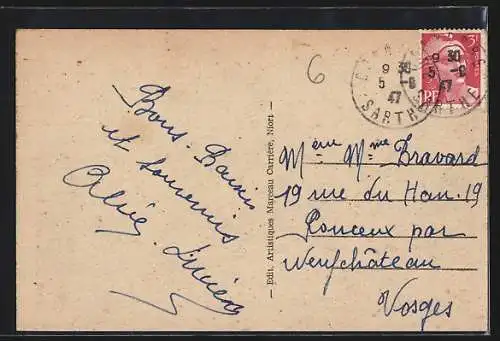 Bons Baisers
et souvenirs
6
9 30
5 -8
47
SARTHE
9 30
5 -8
47
3F
Mme Bravard
19 rue du Han 19
Rouceux par
Neufchâteau
Vosges
Edit. Artistiques Marceau Carrière, Niort